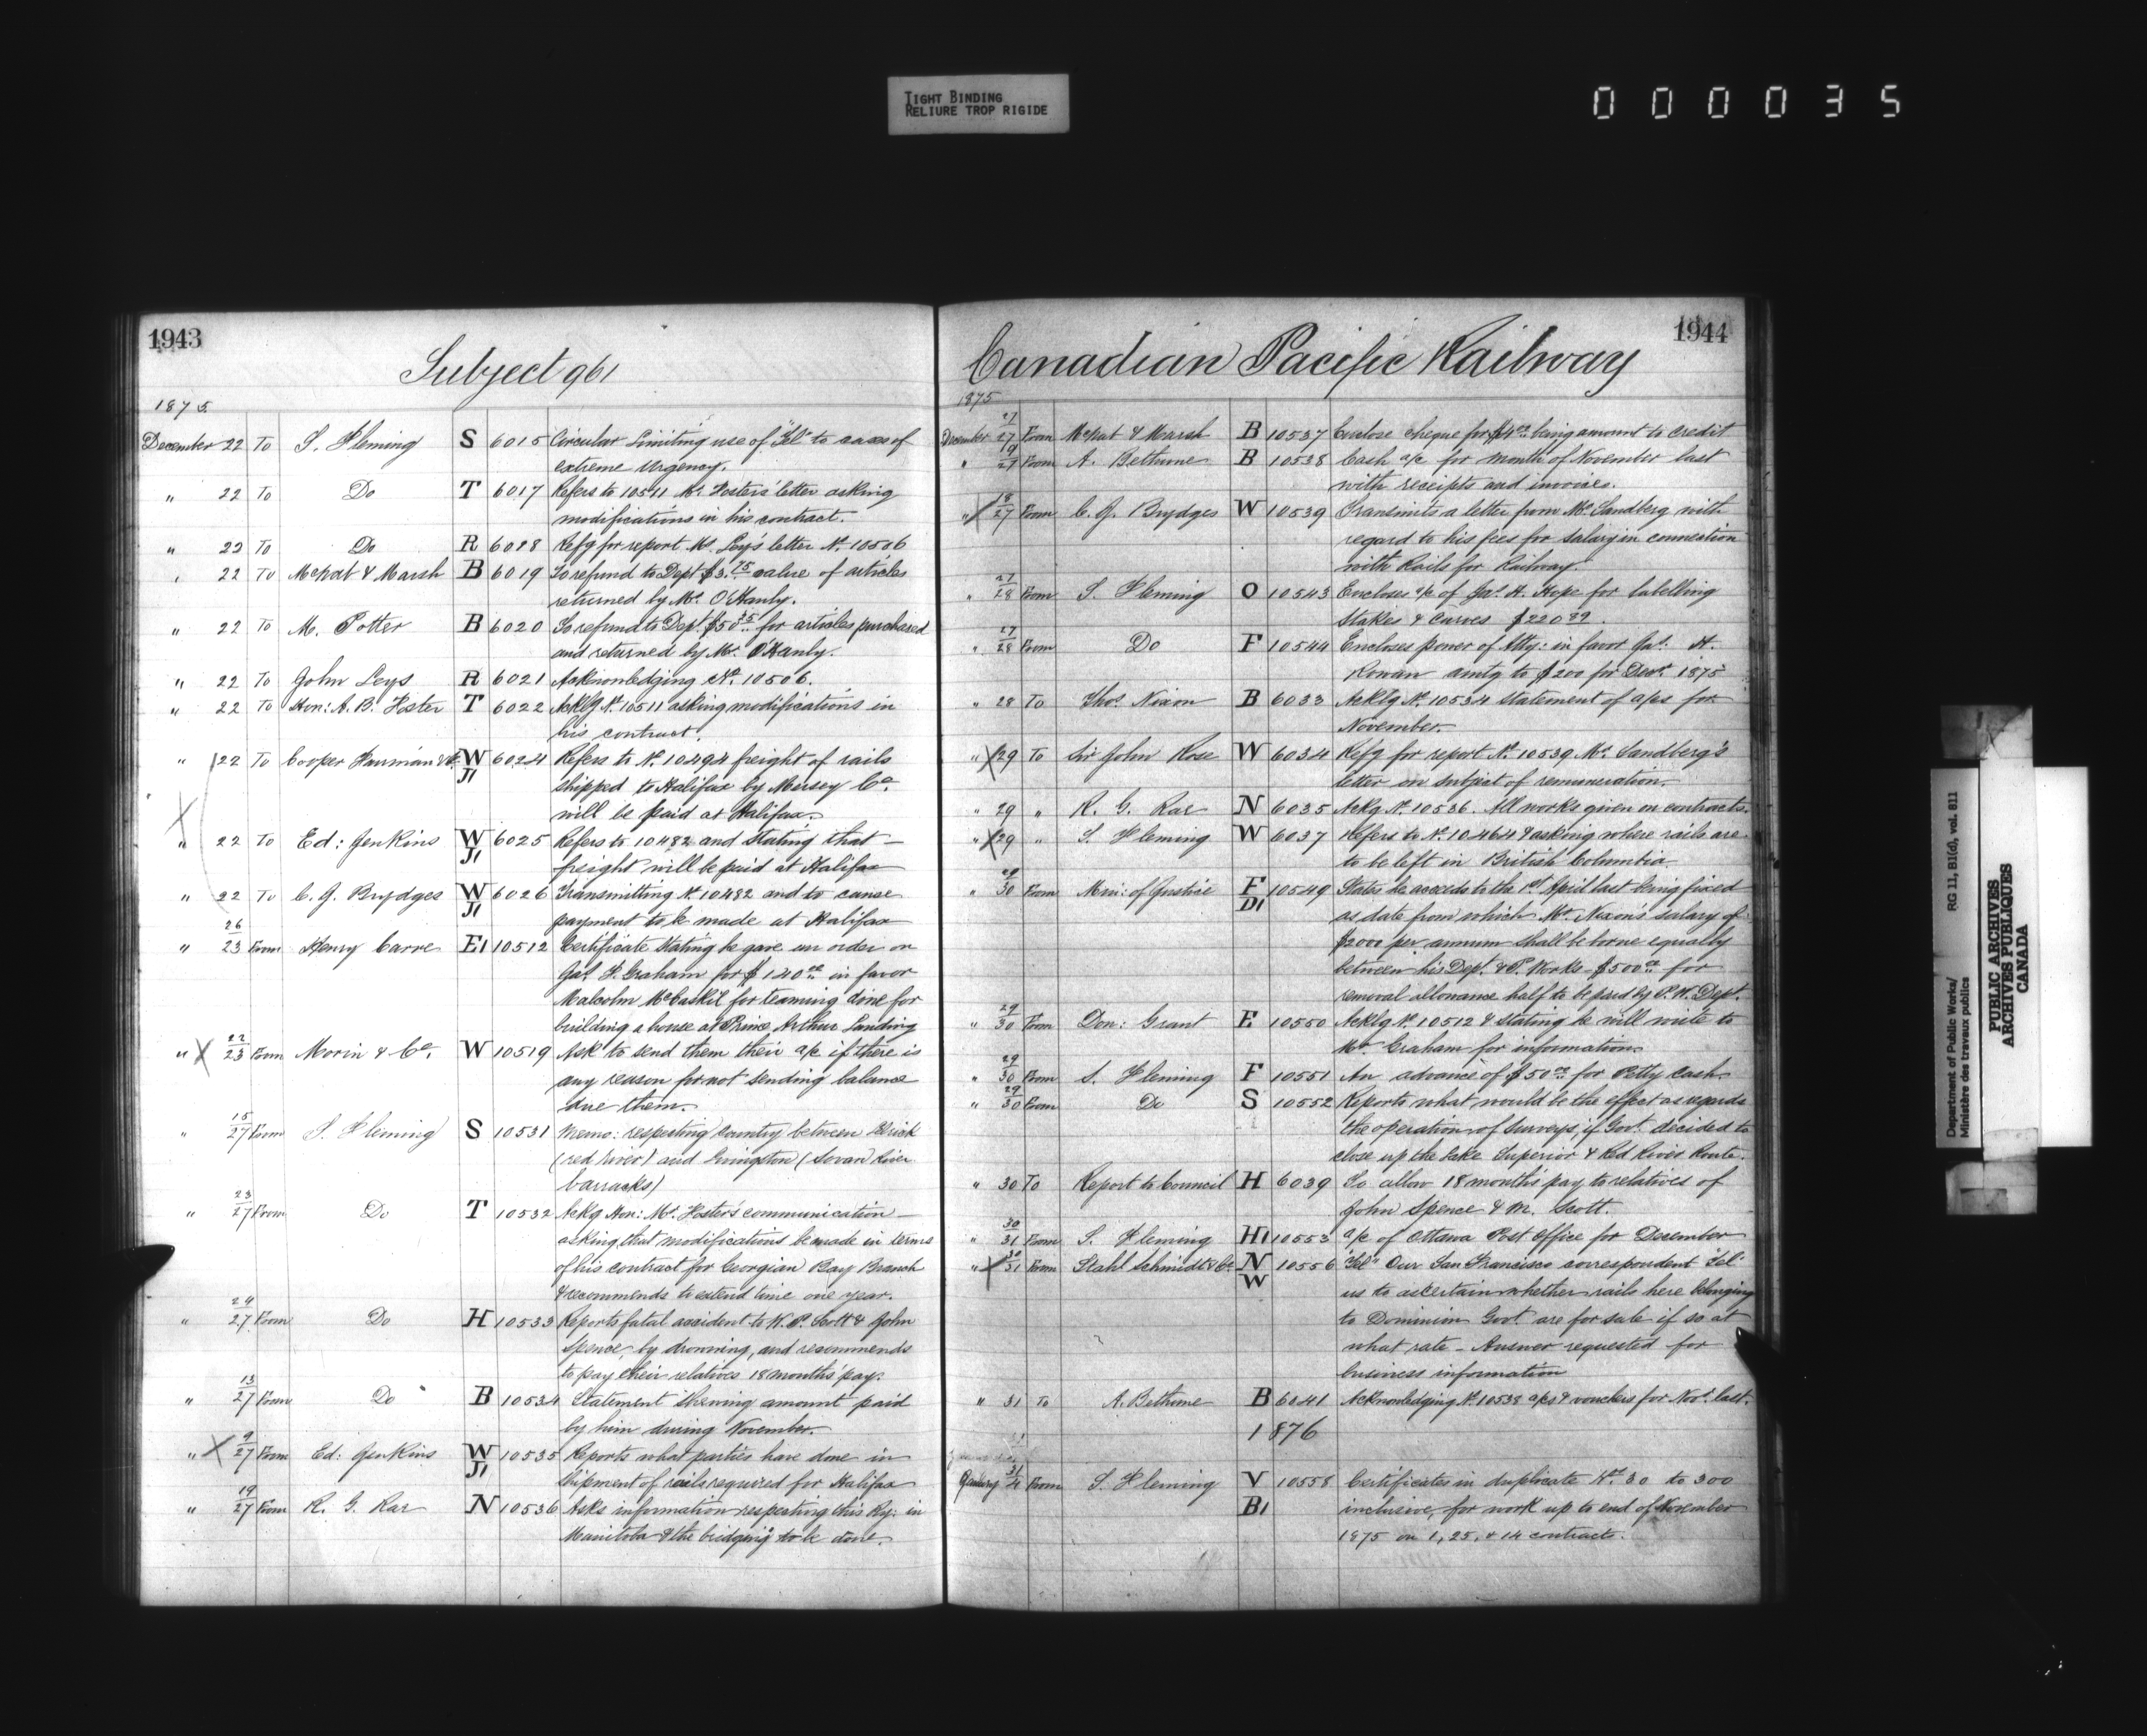 TIGHT BINDING
RELIURE TROP RIGIDE
000035
1943
Subject 961
1875
December 22 To S. Fleming S 6015 Circular Limiting use of "Tel" to cases of
extreme Urgency.
" 22 To Do T 6017 Refers to 10511 Mr. Foster's letter asking
modifications in his contract.
" 22 To Do R 6018 Refg for report Mr. Ley's letter No. 10506
" 22 To McNat & Marsh B 6019 To refund to Dept $3.75 value of articles
returned by Mr. O'Hanly.
" 22 To M. Potter B 6020 To refund to Dept. $50.35 for articles purchased
and returned by Mr. O'Hanly.
" 22 To John Leys R 6021 Acknowledging No. 10506.
" 22 To Hon: A. B. Foster T 6022 Acklg No. 10511 asking modifications in
his contract.
" 22 To Cooper Fairman & Co. W J1 6024 Refers to No. 10494 freight of rails
shipped to Halifax by Mersey Co.
will be paid at Halifax.
" 22 To Ed: Jenkins W J1 6025 Refers to 10482 and stating that —
freight will be paid at Halifax
" 22 To C. J. Brydges W J1 6026 Transmitting No. 10482 and to cause
payment to be made at Halifax
" 26/23 From Henry Carre E1 10512 Certificate stating he gave an order on
Jas. H. Graham for $140.00 in favor
Malcolm McCaskil for teaming done for
building a house at Prince Arthur Landing
" X 22/23 From Morin & Co. W 10519 Ask to send them their a/c if there is
any reason for not sending balance
due them.
" 15/27 From S. Fleming S 10531 Memo: respecting country between Selkirk
(red river) and Livingston (Swan River
barracks)
" 23/27 From Do T 10532 Ackg Hon: Mr. Foster's communication —
asking that modifications be made in terms
of his contract for Georgian Bay Branch
& recommends to extend time one year.
" 24/27 From Do H 10533 Reports fatal accident to W. P. Scott & John
Spence, by drowning, and recommends
to pay their relatives 18 months' pay.
" 13/27 From Do B 10534 Statement Shewing amount paid
by him during November.
" X 9/27 From Ed: Jenkins W J1 10535 Reports what parties have done in
shipment of rails required for Halifax
" 19/27 From R. G. Rae N 10536 Asks information respecting this Ry: in
Manitoba & the bridging to be done.
1944
Canadian Pacific Railway
1875
December 27/27 From McNat & Marsh B 10537 Enclose cheque for $4.00 being amount to credit
" 19/27 From A. Bethune B 10538 Cash a/c for month of November last
with receipts and invoices.
" 18/27 From C. J. Brydges W 10539 Transmits a letter from Mr. Sandberg with
regard to his fees for salary in connection
with Rails for Railway.
" 27/28 From S. Fleming O 10543 Encloses a/c of Jas. H. Hope for labelling
Stakes & Curves $220.39.
" 27/28 From Do F 10544 Encloses power of Atty: in favor Jas. H.
Rowan amtg to $200 for Decr. 1875
" 28 To Thos. Nixon B 6033 Acklg No. 10534 statement of a/cs for
November.
" X 29 To Sir John Rose W 6034 Refg for report No. 10539 Mr. Sandberg's
letter on subject of remuneration.
" 29 " R. G. Rae N 6035 Ackg No. 10536. All works given on contracts.
" X 29 " S. Fleming W 6037 Refers to No. 10464 & asking where rails are
to be left in British Columbia
" 29/30 From Min: of Justice F D1 10549 States he accedes to the 1st April last being fixed
as date from which Mr. Nixon's salary of
$2000 per annum shall be borne equally
between his Dept. & P. Works — $500.00 for
removal allowance half to be paid by P. W. Dept.
" 29/30 From Don: Grant E 10550 Acklg No. 10512 & stating he will write to
Mr. Graham for information
" 29/30 From S. Fleming F 10551 An advance of $50.00 for Petty Cash.
" 29/30 From Do S 10552 Reports what would be the effect as regards
the operation of Surveys, if Govt. decided to
close up the Lake Superior & Red River Route.
" 30 To Report to Council H 6039 To allow 18 month's pay to relatives of
John Spence & M. Scott.
" 30/31 From S. Fleming H1 10553 a/c of Ottawa Post Office for December
" X 30/31 From Stahl Schmidt & Co. N W 10556 "Tel" Our San Francisco correspondent Tel:
us to ascertain whether rails here belonging
to Dominion Govt. are for sale if so at
what rate — Answer requested for
business information
" 31 To A. Bethune B 6041 Acknowledging No. 10538 a/cs & vouchers for Novr. last.
1876
January 31/4 From S. Fleming V B1 10558 Certificates in duplicate Nos. 30 to 300
inclusive, for work up to end of November
1875 on 1, 25, & 14 contracts.
Department of Public Works/ RG 11, B1(d), vol. 811
Ministère des travaux publics
PUBLIC ARCHIVES
ARCHIVES PUBLIQUES
CANADA